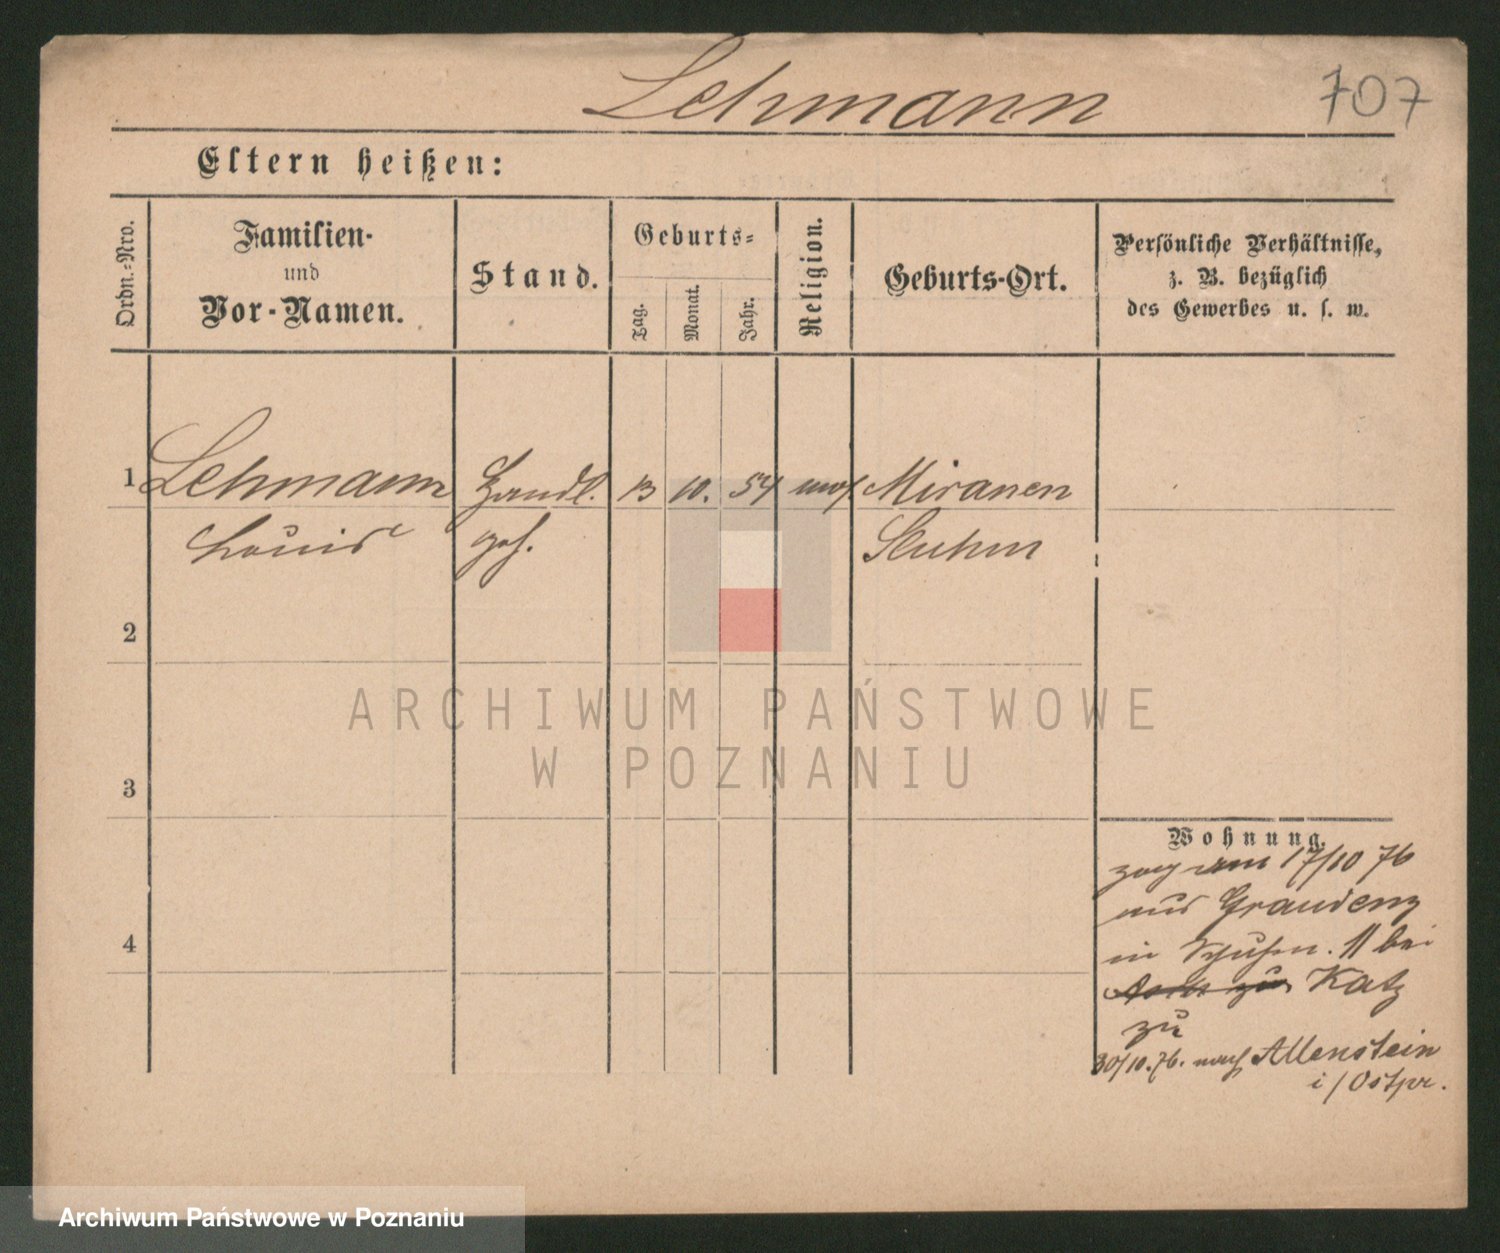 Lehmann 707
Eltern heißen:
Ordn.-Nro.
Familien-
und
Vor-Namen.
Stand.
Geburts-
Tag.
Monat.
Jahr.
Religion.
Geburts-Ort.
Persönliche Verhältnisse,
z. B. bezüglich
des Gewerbes u. s. w.
1 Lehmann Handl. 13 10. 54 mos Miranen
Louis geh. Stuhm
2
3
4
Wohnung.
zog am 17/10 76
aus Graudenz
in 11 bei
Katz
zu
30/10.76. nach Allenstein
i/Ostpr.
ARCHIWUM PAŃSTWOWE
W POZNANIU
Archiwum Państwowe w Poznaniu